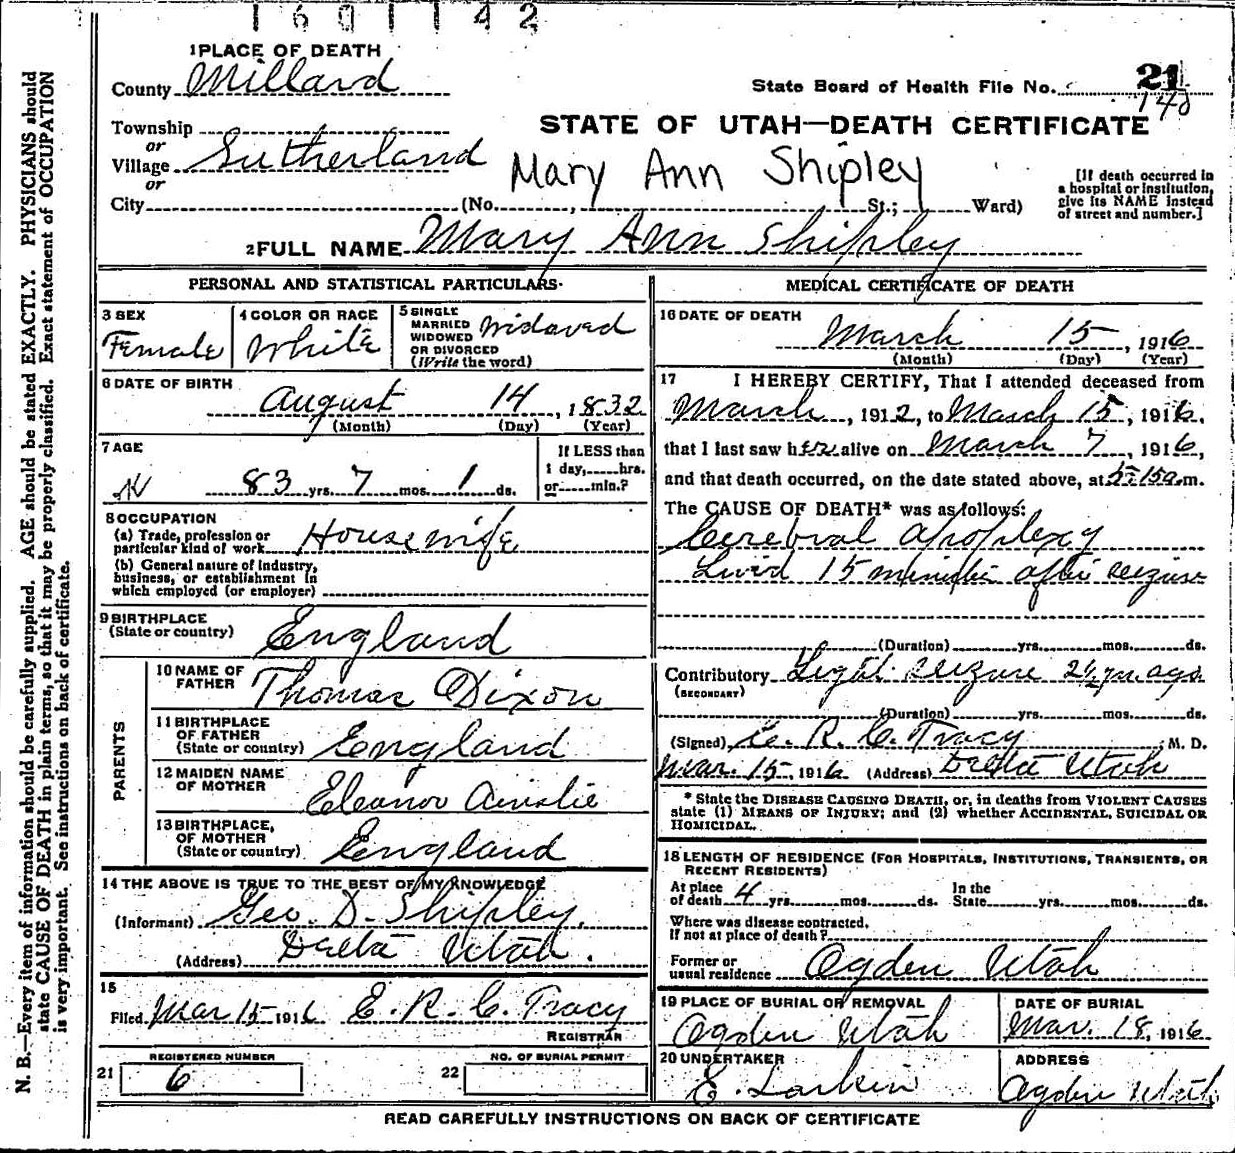 1 6 0 1 1 4 2
1 PLACE OF DEATH
County Millard
State Board of Health File No. 21
140
Township
or
Village Sutherland
or
City (No. , St.; Ward)
STATE OF UTAH—DEATH CERTIFICATE
Mary Ann Shipley
[If death occurred in
a hospital or institution,
give its NAME instead
of street and number.]
2 FULL NAME Mary Ann Shipley
PERSONAL AND STATISTICAL PARTICULARS.
3 SEX
Female
4 COLOR OR RACE
White
5 SINGLE
MARRIED
WIDOWED
OR DIVORCED
(Write the word)
Widowed
6 DATE OF BIRTH
August 14, 1832
(Month) (Day) (Year)
7 AGE
83 yrs. 7 mos. 1 ds.
If LESS than
1 day, hrs.
or min.?
8 OCCUPATION
(a) Trade, profession or
particular kind of work Housewife
(b) General nature of industry,
business, or establishment in
which employed (or employer)
9 BIRTHPLACE
(State or country) England
PARENTS
10 NAME OF
FATHER Thomas Dixon
11 BIRTHPLACE
OF FATHER
(State or country) England
12 MAIDEN NAME
OF MOTHER Eleanor Ainslie
13 BIRTHPLACE,
OF MOTHER
(State or country) England
14 THE ABOVE IS TRUE TO THE BEST OF MY KNOWLEDGE
(Informant) Geo. D. Shipley,
(Address) Delta Utah.
15
Filed Mar 15 1916 E. R. C. Tracy
REGISTRAR
REGISTERED NUMBER
21 6
NO. OF BURIAL PERMIT
22
MEDICAL CERTIFICATE OF DEATH
16 DATE OF DEATH
March 15, 1916
(Month) (Day) (Year)
17 I HEREBY CERTIFY, That I attended deceased from
March, 1912, to March 15, 1916,
that I last saw her alive on March 7, 1916,
and that death occurred, on the date stated above, at 5:15 a.m.
The CAUSE OF DEATH* was as follows:
Cerebral apoplexy
Livid 15 minutes after seizure
(Duration) yrs. mos. ds.
Contributory Light seizure 2½ yrs. ago
(SECONDARY)
(Duration) yrs. mos. ds.
(Signed) E. R. C. Tracy M. D.
Mar. 15, 1916 (Address) Delta Utah
* State the DISEASE CAUSING DEATH, or, in deaths from VIOLENT CAUSES
state (1) MEANS OF INJURY; and (2) whether ACCIDENTAL, SUICIDAL OR
HOMICIDAL.
18 LENGTH OF RESIDENCE (FOR HOSPITALS, INSTITUTIONS, TRANSIENTS, OR
RECENT RESIDENTS)
At place
of death 4 yrs. mos. ds.
In the
State yrs. mos. ds.
Where was disease contracted,
If not at place of death?
Former or
usual residence Ogden Utah
19 PLACE OF BURIAL OR REMOVAL
Ogden Utah
DATE OF BURIAL
Mar. 18, 1916
20 UNDERTAKER
E. Larkin
ADDRESS
Ogden Utah
READ CAREFULLY INSTRUCTIONS ON BACK OF CERTIFICATE
N. B.—Every item of information should be carefully supplied. AGE should be stated EXACTLY. PHYSICIANS should
state CAUSE OF DEATH in plain terms, so that it may be properly classified. Exact statement of OCCUPATION
is very important. See instructions on back of certificate.